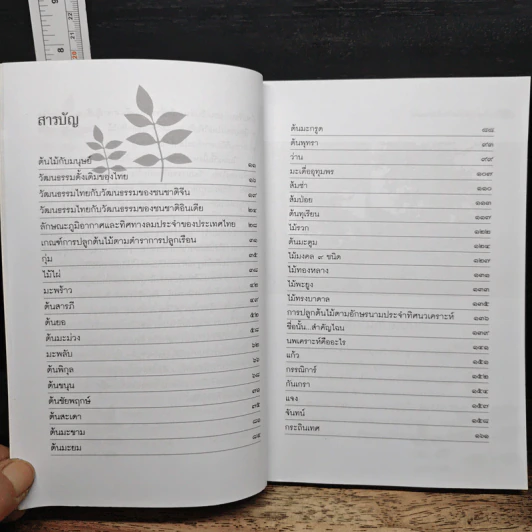 สารบัญ
ต้นไม้กับมนุษย์ ๑๑
วัฒนธรรมดั้งเดิมของไทย ๑๖
วัฒนธรรมไทยกับวัฒนธรรมของชนชาติจีน ๑๙
วัฒนธรรมไทยกับวัฒนธรรมของชนชาติอินเดีย ๒๔
ลักษณะภูมิอากาศและทิศทางลมประจำของประเทศไทย ๒๘
เกณฑ์การปลูกต้นไม้ตามตำราการปลูกเรือน
กุ่ม ๓๕
ไม้ไผ่ ๓๘
มะพร้าว ๔๒
ต้นสารภี ๔๙
ต้นยอ ๕๒
ต้นมะม่วง ๕๘
มะพลับ ๖๒
ต้นพิกุล ๖๖
ต้นขนุน ๖๘
ต้นชัยพฤกษ์ ๗๑
ต้นสะเดา ๗๕
ต้นมะขาม ๗๘
ต้นมะยม ๘๔
ต้นมะกรูด ๘๘
ต้นพุทรา ๙๓
ว่าน ๙๙
มะเดื่ออุทุมพร ๑๐๗
ส้มซ่า ๑๑๐
ส้มป่อย ๑๑๓
ต้นทุเรียน ๑๑๗
ไม้รวก ๑๒๒
ต้นมะตูม ๑๒๔
ไม้มงคล ๙ ชนิด ๑๒๗
ไม้ทองหลาง ๑๓๑
ไม้พะยูง ๑๓๓
ไม้ทรงบาดาล ๑๓๕
การปลูกต้นไม้ตามอักษรนามประจำทิศนวเคราะห์ ๑๓๖
ชื่อนั้น...สำคัญไฉน ๑๓๙
นพเคราะห์คืออะไร
แก้ว ๑๕๑
กรรณิการ์ ๑๕๒
กันเกรา ๑๕๔
แจง ๑๕๗
จันทน์ ๑๕๘
กระถินเทศ ๑๖๑